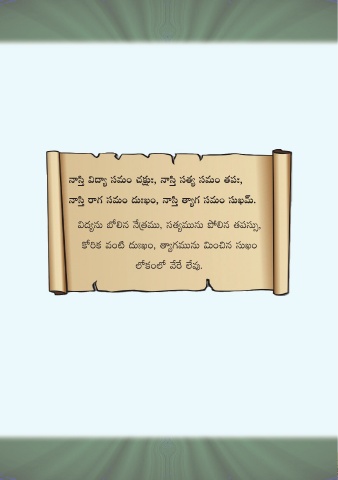 నాస్తి విద్యా సమం చక్షుః, నాస్తి సత్య సమం తపః,
నాస్తి రాగ సమం దుఃఖం, నాస్తి త్యాగ సమం సుఖమ్.
విద్యను బోలిన నేత్రము, సత్యమును పోలిన తపస్సు,
కోరిక వంటి దుఃఖం, త్యాగమును మించిన సుఖం
లోకంలో వేరే లేవు.